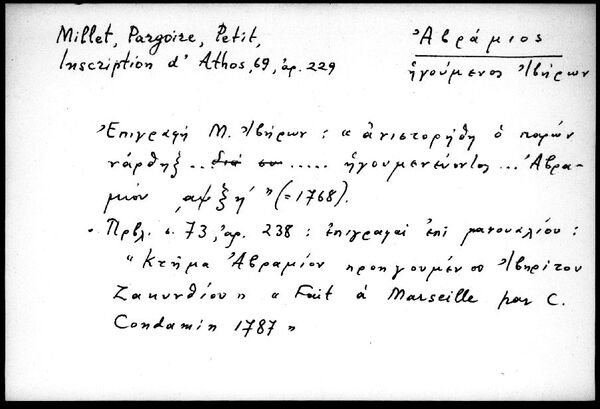 Millet, Pargoire, Petit,
Inscription d' Athos, 69, ἀρ. 229
Ἀβράμιος
ἡγούμενος Ἰβήρων
Ἐπιγραφὴ Μ. Ἰβήρων : "ἀνιστορήθη ὁ παρὼν
νάρθηξ .. διὰ ..... ἡγουμενεύοντος ... Ἀβρα-
μίου ͵αψξη´" (=1768).
Πρβλ. σ. 73, ἀρ. 238 : ἐπιγραφαὶ ἐπὶ μανουαλίου :
"Κτῆμα Ἀβραμίου προηγουμένου Ἰβηρίτου
Ζακυνθίου" "Fait à Marseille par C.
Condamin 1787"